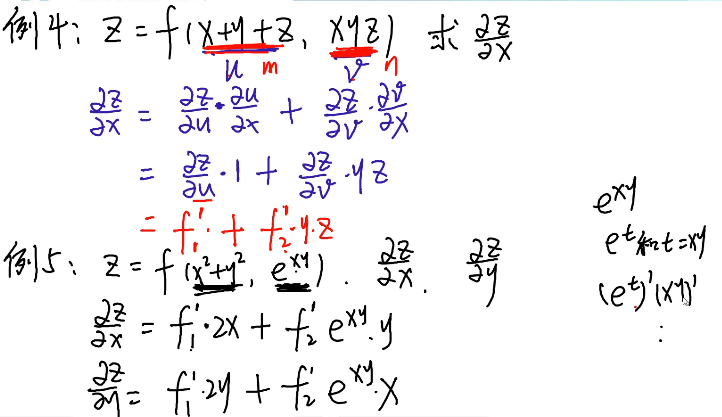 例4: z = f(x+y+z, xyz) 求 ∂z/∂x
u m v n
∂z/∂x = ∂z/∂u · ∂u/∂x + ∂z/∂v · ∂v/∂x
= ∂z/∂u · 1 + ∂z/∂v · yz
= f₁' + f₂' · y · z
例5: z = f(x²+y², e^{xy}). ∂z/∂x. ∂z/∂y
∂z/∂x = f₁' · 2x + f₂' e^{xy} · y
∂z/∂y = f₁' · 2y + f₂' e^{xy} · x
e^{xy}
e^t 和 t = xy
(e^t)' (xy)'
: